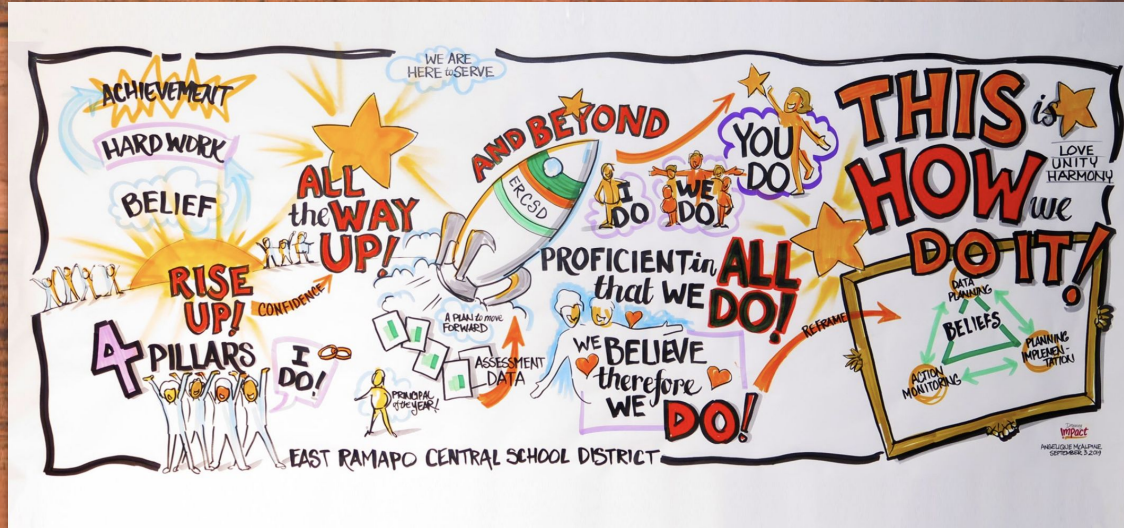 ACHIEVEMENT
HARD WORK
BELIEF
RISE
UP!
CONFIDENCE
4 PILLARS
I
DO!
ALL
the WAY
UP!
WE ARE
HERE to SERVE
AND BEYOND
ERCSD
A PLAN to move
FORWARD
ASSESSMENT
DATA
PRINCIPAL
of the YEAR!
I
DO
WE
DO
YOU
DO
PROFICIENT in ALL
that WE DO!
WE BELIEVE
therefore
WE DO!
REFRAME
THIS is
HOW we
DO IT!
LOVE
UNITY
HARMONY
DATA
PLANNING
BELIEFS
PLANNING
IMPLEMEN-
TATION
ACTION
MONITORING
EAST RAMAPO CENTRAL SCHOOL DISTRICT
Impact
ANGELIQUE McALPINE
SEPTEMBER 3, 2019